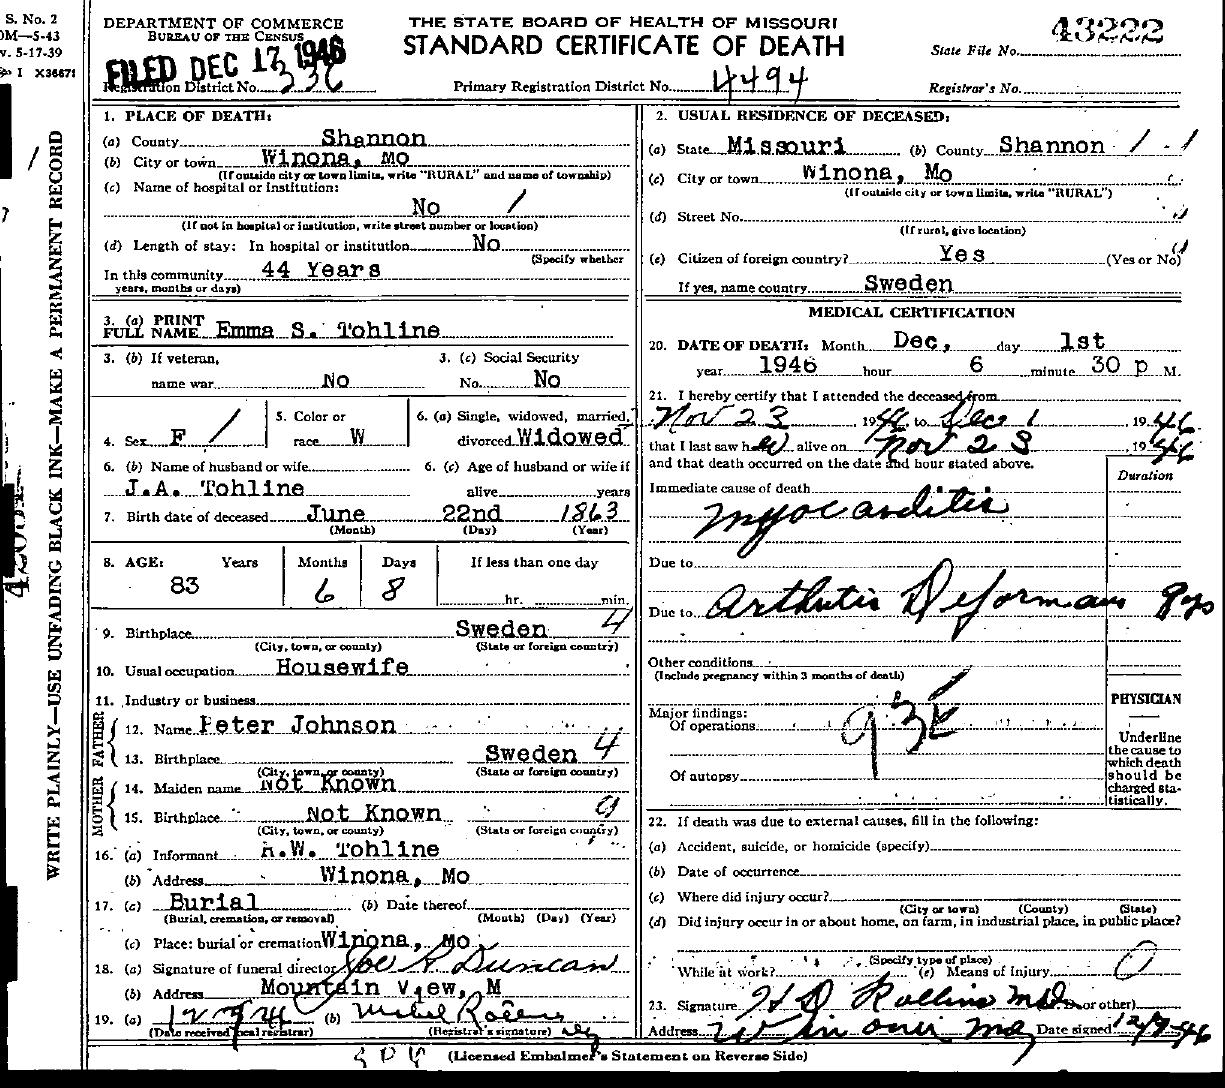 S. No. 2
OM—5-43
v. 5-17-39
I X36671
WRITE PLAINLY—USE UNFADING BLACK INK—MAKE A PERMANENT RECORD
DEPARTMENT OF COMMERCE
BUREAU OF THE CENSUS
FILED DEC 17 1946
Registration District No. 336
THE STATE BOARD OF HEALTH OF MISSOURI
STANDARD CERTIFICATE OF DEATH
Primary Registration District No. 4494
43222
State File No.
Registrar's No.
1. PLACE OF DEATH:
(a) County Shannon
(b) City or town Winona, Mo
(If outside city or town limits, write "RURAL" and name of township)
(c) Name of hospital or institution:
No
(If not in hospital or institution, write street number or location)
(d) Length of stay: In hospital or institution No
(Specify whether
In this community 44 Years
years, months or days)
3. (a) PRINT
FULL NAME Emma S. Tohline
3. (b) If veteran,
name war No
3. (c) Social Security
No. No
4. Sex F
5. Color or
race W
6. (a) Single, widowed, married,
divorced Widowed
6. (b) Name of husband or wife
J.A. Tohline
6. (c) Age of husband or wife if
alive years
7. Birth date of deceased June 22nd 1863
(Month) (Day) (Year)
8. AGE: Years Months Days If less than one day
83 6 8 hr. min.
9. Birthplace Sweden 4
(City, town, or county) (State or foreign country)
10. Usual occupation Housewife
11. Industry or business
FATHER
12. Name Peter Johnson
13. Birthplace Sweden 4
(City, town, or county) (State or foreign country)
MOTHER
14. Maiden name Not Known
15. Birthplace Not Known 9
(City, town, or county) (State or foreign country)
16. (a) Informant H.W. Tohline
(b) Address Winona, Mo
17. (a) Burial (b) Date thereof
(Burial, cremation, or removal) (Month) (Day) (Year)
(c) Place: burial or cremation Winona, Mo
18. (a) Signature of funeral director Joe R Duncan
(b) Address Mountain View, M
19. (a) 12 9 46 (b)
(Date received local registrar) (Registrar's signature)
2. USUAL RESIDENCE OF DECEASED:
(a) State Missouri (b) County Shannon
(c) City or town Winona, Mo
(If outside city or town limits, write "RURAL")
(d) Street No.
(If rural, give location)
(e) Citizen of foreign country? Yes (Yes or No)
If yes, name country Sweden
MEDICAL CERTIFICATION
20. DATE OF DEATH: Month Dec, day 1st
year 1946 hour 6 minute 30 p M.
21. I hereby certify that I attended the deceased from
Nov 23, 1946 to Dec 1, 1946
that I last saw her alive on Nov 23, 1946
and that death occurred on the date and hour stated above.
Duration
Immediate cause of death
Myocarditis
Due to
Due to Arthritis Deformans 8 yrs
Other conditions
(Include pregnancy within 3 months of death)
Major findings:
Of operations
Of autopsy
PHYSICIAN
Underline
the cause to
which death
should be
charged sta-
tistically.
22. If death was due to external causes, fill in the following:
(a) Accident, suicide, or homicide (specify)
(b) Date of occurrence
(c) Where did injury occur?
(City or town) (County) (State)
(d) Did injury occur in or about home, on farm, in industrial place, in public place?
(Specify type of place)
While at work? (e) Means of injury
23. Signature H D Rollins M.D. or other)
Address Winona Mo Date signed 12/9-46
(Licensed Embalmer's Statement on Reverse Side)